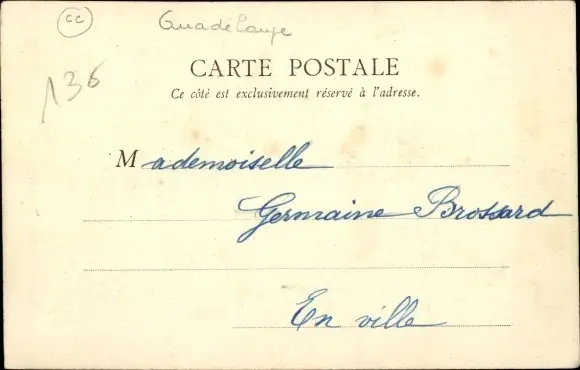 CC
Guadeloupe
136
CARTE POSTALE
Ce côté est exclusivement réservé à l'adresse.
Mademoiselle
Germaine Brossard
En ville